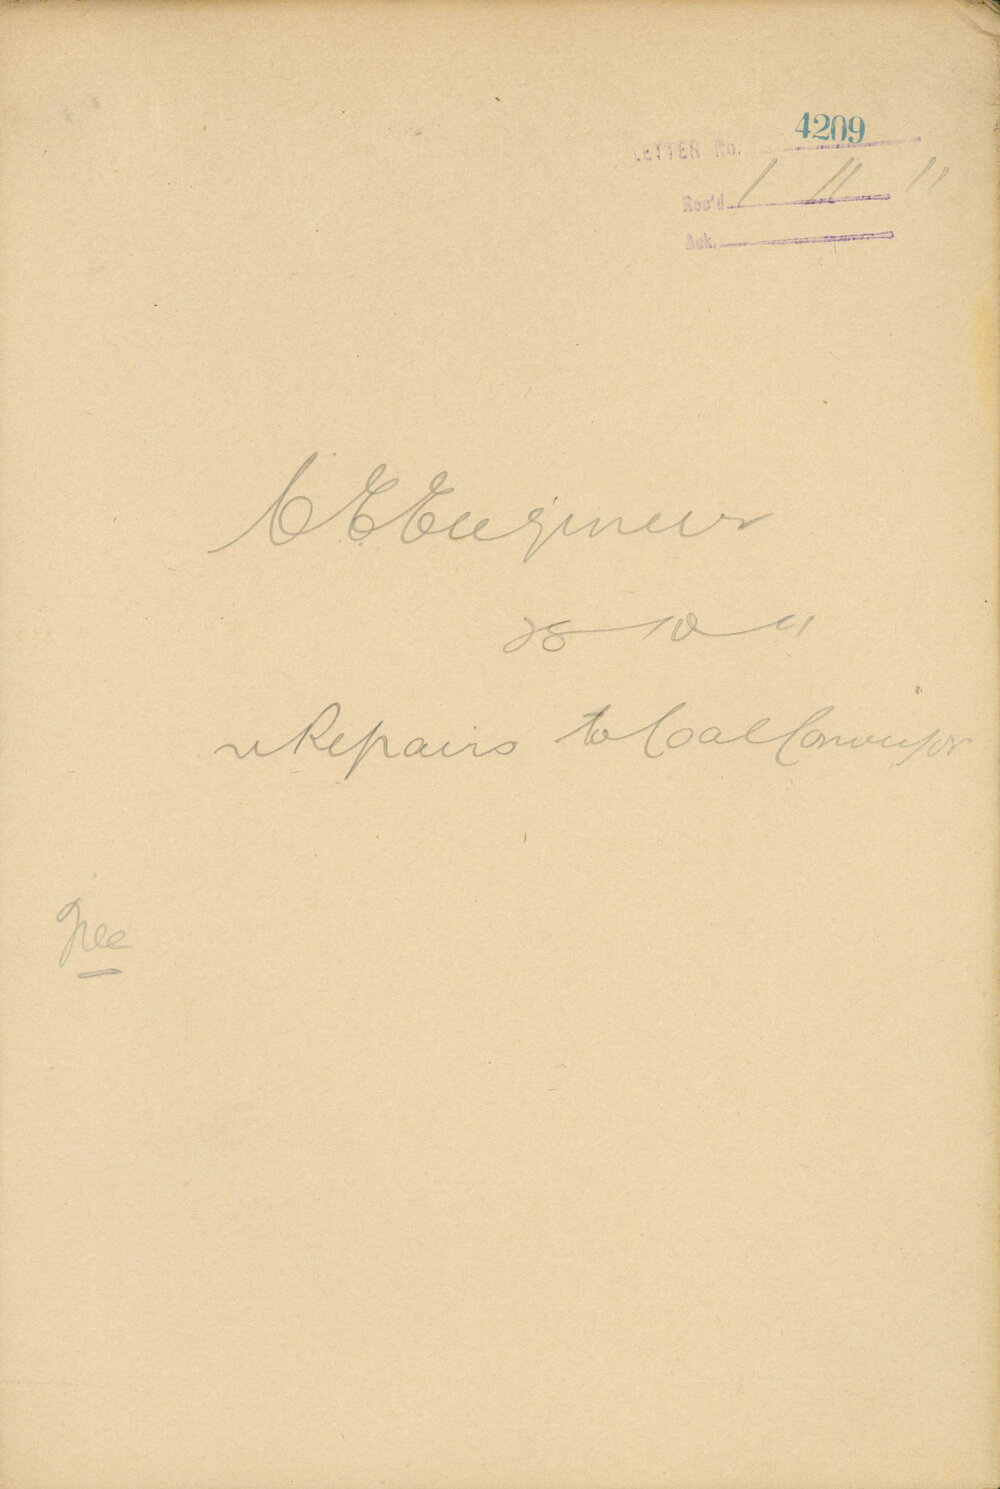 4209
LETTER No.
Rec'd 1 11 11
Ack.
C E Engineer
28-10-11
r Repairs to Coal Conveyor